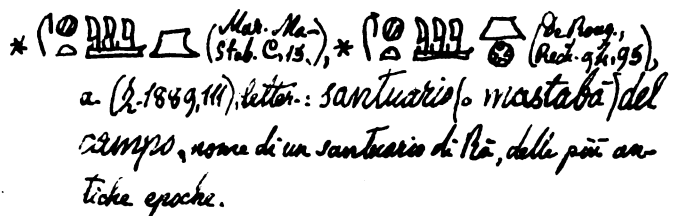 * (Mar. Ma-
stab. C, 15,), * (De Roug.,
Rech. 94, 95),
a. (Z. 1889, 111), letter.: santuario (o mastabà) del
campo, nome di un santuario di Rā, delle più an-
tiche epoche.